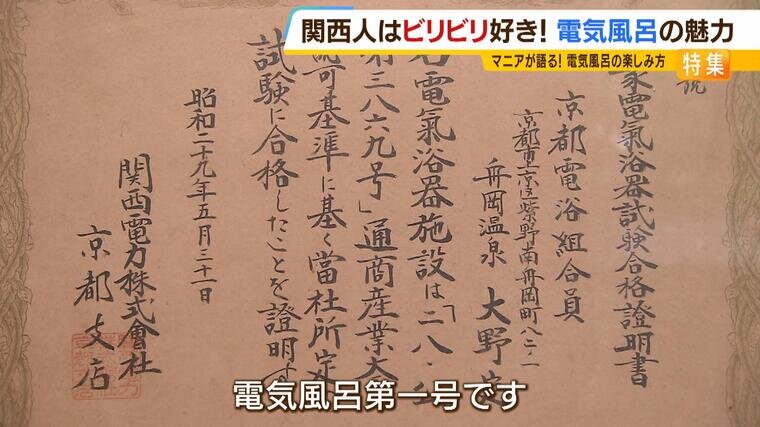 関西人はビリビリ好き！電気風呂の魅力
マニアが語る！電気風呂の楽しみ方
特集
号
家電氣浴器試験合格證明書
京都電浴組合員
京都市上京区紫野南舟岡町八二ノ一
舟岡温泉 大野
電氣浴器施設は「二八・
第三八六九号」通商産業大
認可基準に基く當社所定
試験に合格したことを證明す
昭和二十九年五月三十一日
関西電力株式會社
京都支店
電気風呂第一号です